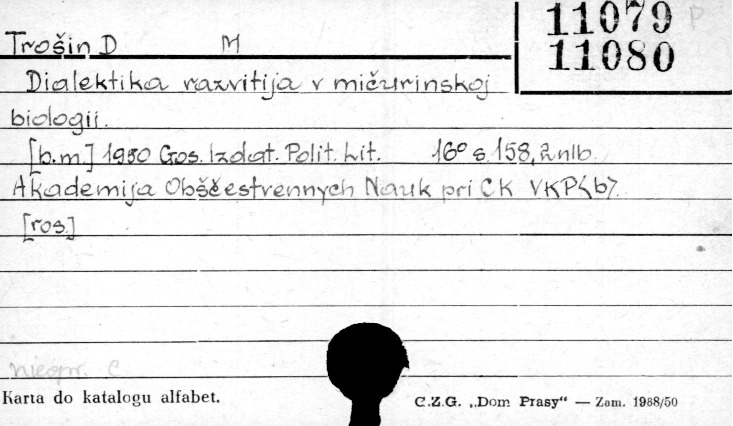 11079 P
11080
Trošin D M
Dialektika razvitija v mičurinskoj
biologii.
[b.m.] 1950 Gos. Izdat. Polit. Lit. 16° s. 158, 2 nlb.
Akademija Obščestvennych Nauk pri CK VKP(b).
[ros.]
nieopr. C
Karta do katalogu alfabet.
C.Z.G. „Dom Prasy“ — Zam. 1988/50